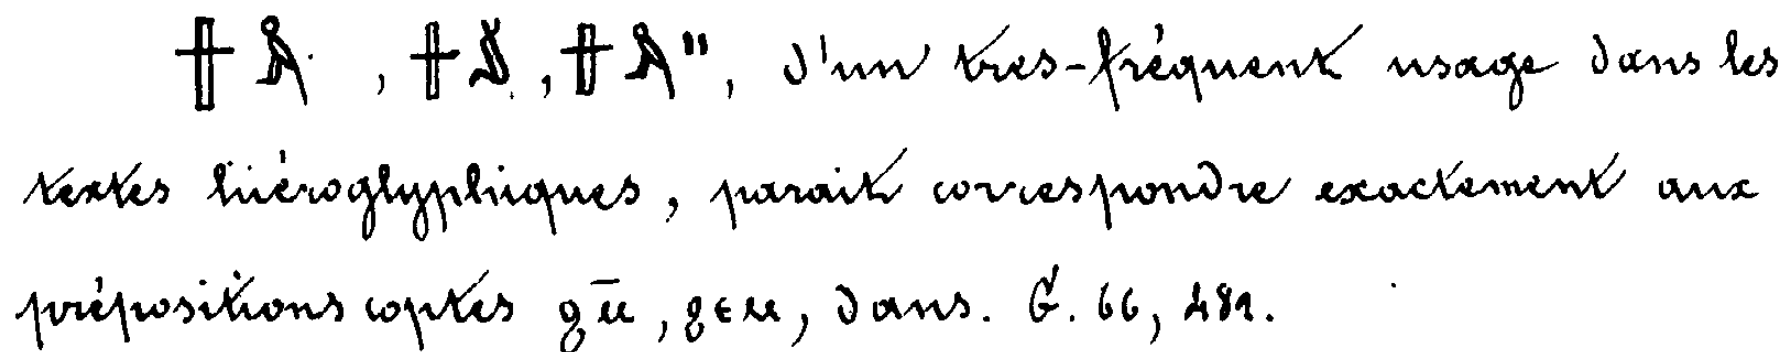 , , , d'un très-fréquent usage dans les
textes hiéroglyphiques, parait correspondre exactement aux
prépositions coptes ϩⲙ̄, ϩⲉⲙ, dans. G. 66, 481.